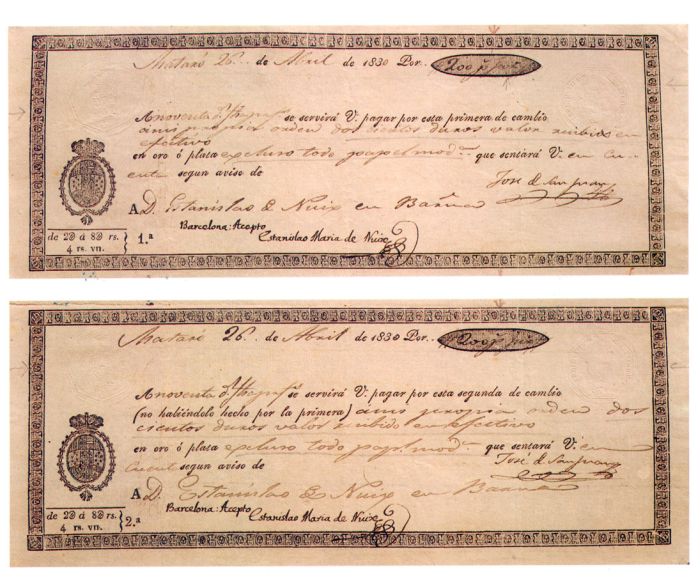 Mataró 26 de Abril de 1830 Por.. 200 ps. fs.
A noventa d. fha. prefs. se servirá V. pagar por esta primera de cambio
á mi propria orden dos cientos duros valor recibido en
efectivo
en oro ó plata excluso todo papel mod.ª que sentará V. en cu
enta segun aviso de
José de San Juan
A D. Estanislao de Nuix en Barna
Barcelona: Acepto
Estanislao Maria de Nuixe
de 2@ á 8@ rs.
4 rs. vn.
1.ª
Mataró 26. de Abril de 1830 Por.. 200 ps. fs.
A noventa d. fha. prefs. se servirá V. pagar por esta segunda de cambio
(no habiéndolo hecho por la primera) á mi propria orden dos
cientos duros valor recibido en efectivo
en oro ó plata excluso todo papel mod.ª que sentará V. en
cuent segun aviso de
José de San Juan
A D. Estanislao de Nuix en Barna
Barcelona: Acepto
Estanislao Maria de Nuixe
de 2@ á 8@ rs.
4 rs. vn.
2.ª